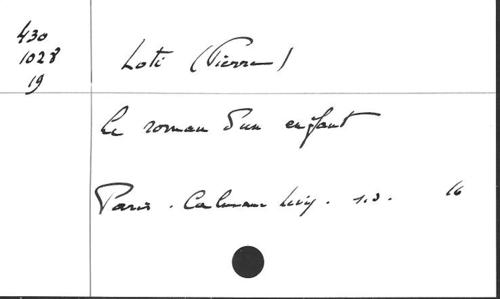 430
1028
19
Loti (Pierre)
Le roman d'un enfant
Paris. Calmann Lévy. s.d. 16